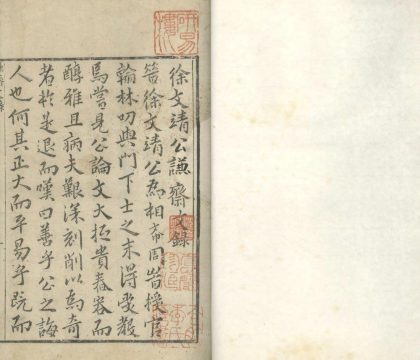 徐文靖公謙齋文錄
昔徐文靖公為相而固嘗授官
翰林叨與門下士之末得受教
焉嘗見公論文大抵貴舂容而
醇雅且病夫艱深刻削以為奇
者於是退而嘆曰善乎公之誨
人也何其正大而平易乎既而